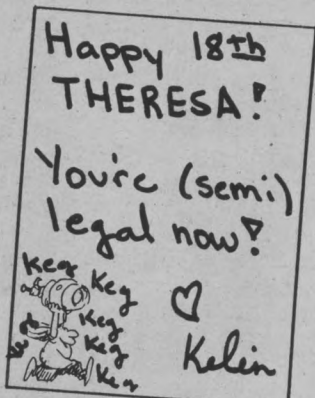 Happy 18th
THERESA!
You're (semi)
legal now!
Keg
Keg
Keg
Keg
Keg
Keg
♡
Kelin